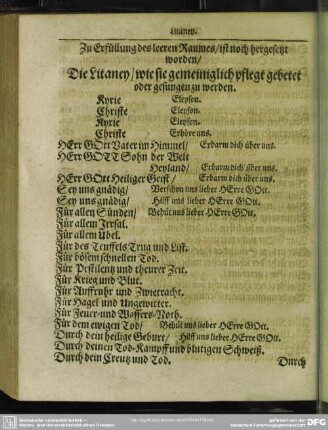 Litaney.
Zu Erfüllung des leeren Raumes/ist noch hergesetzt
worden/
Die Litaney/wie sie gemeiniglich pflegt gebetet
oder gesungen zu werden.
Kyrie Eleyson.
Christe Eleyson.
Kyrie Eleyson.
Christe Erhöre uns.
HErr GOtt Vater im Himmel/ Erbarm dich über uns.
HErr GOTT Sohn der Welt
Heyland/ Erbarm dich über uns.
HErr GOtt Heiliger Geist/ Erbarm dich über uns.
Sey uns gnädig/ Verschon uns lieber HErre GOtt.
Sey uns gnädig/ Hilff uns lieber HErre GOtt.
Für allen Sünden/ Behüt uns lieber HErre GOtt.
Für allem Irrsal.
Für allem Übel.
Für des Teuffels Trug und List.
Für bösem schnellen Tod.
Für Pestilentz und theurer Zeit.
Für Krieg und Blut.
Für Auffruhr und Zwietracht.
Für Hagel und Ungewitter.
Für Feuer- und Wassers-Noth.
Für dem ewigen Tod/ Behüt uns lieber HErre GOtt.
Durch dein heilige Geburt/ Hilff uns lieber HErre GOtt.
Durch deinen Tod-Kampff und blutigen Schweiß.
Durch dein Creutz und Tod.
Durch